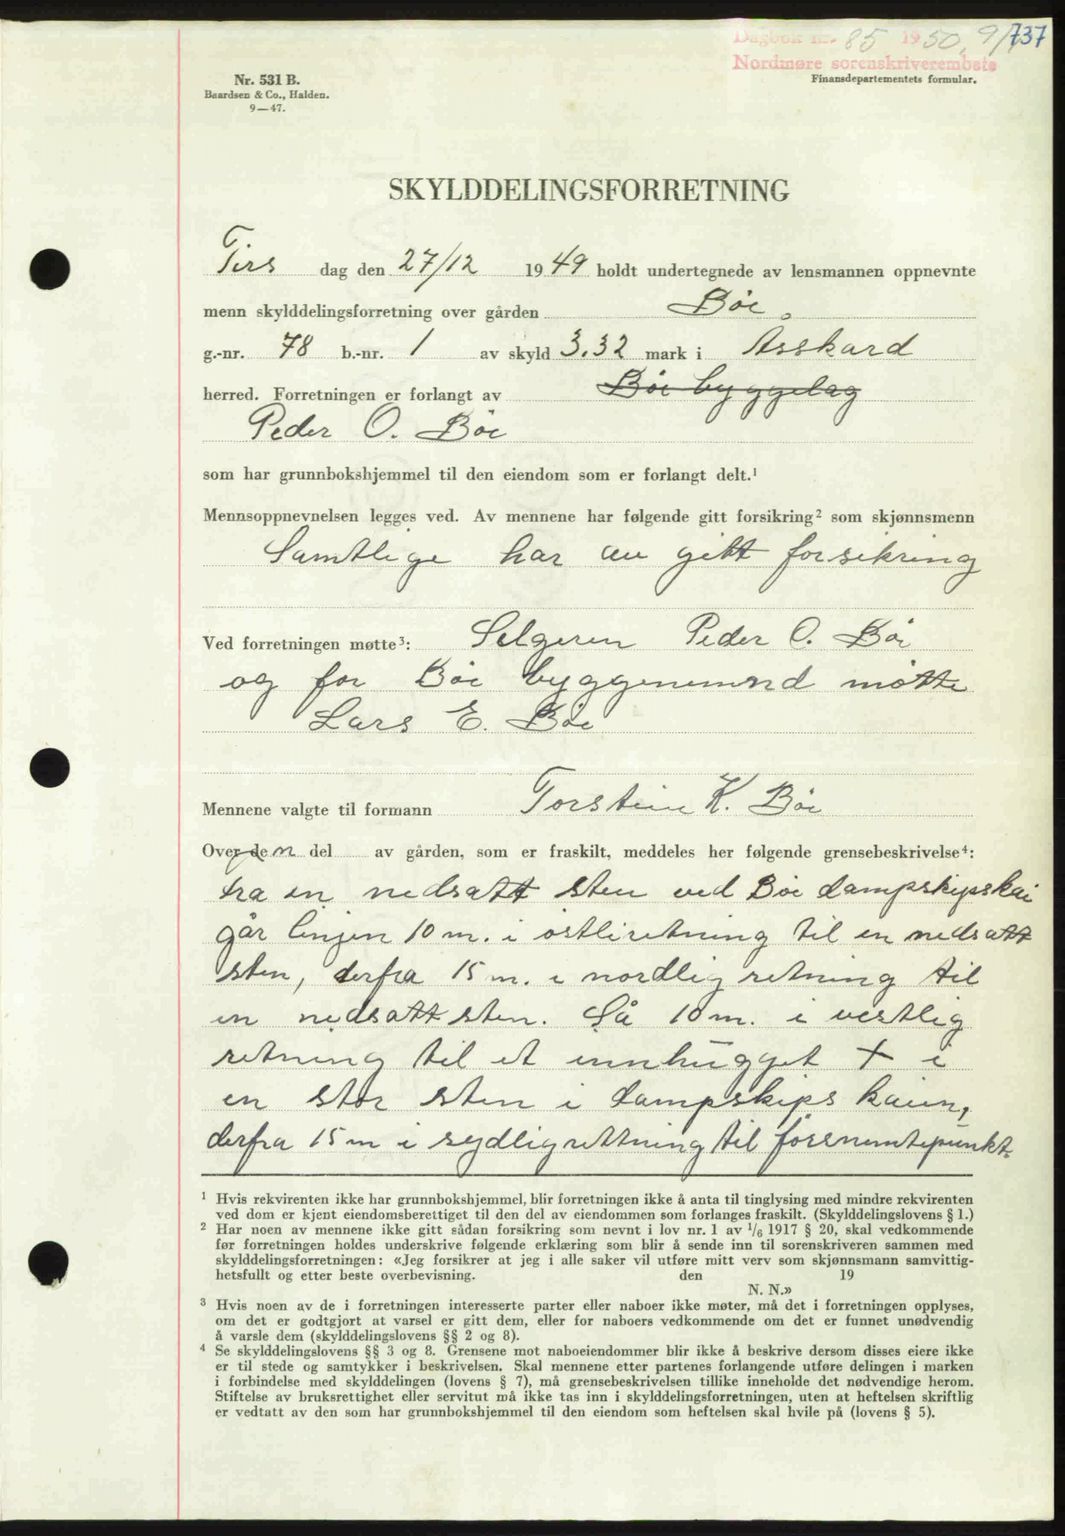 Dagbok nr. 85 1950, 9/1 737
Nordmøre sorenskriverembete
Nr. 531 B.
Baardsen & Co., Halden.
9—47.
Finansdepartementets formular.
SKYLDDELINGSFORRETNING
Tirs dag den 27/12 1949 holdt undertegnede av lensmannen oppnevnte
menn skylddelingsforretning over gården Bøe
g.-nr. 78 b.-nr. 1 av skyld 3.32 mark i Åsskard
herred. Forretningen er forlangt av Bøe byggelag
Peder O. Bøe
som har grunnbokshjemmel til den eiendom som er forlangt delt.¹
Mennsoppnevnelsen legges ved. Av mennene har følgende gitt forsikring² som skjønnsmenn
Samtlige har av gitt forsikring
Ved forretningen møtte³: Selgeren Peder O. Bøe
og for Bøe byggenemnd møtte
Lars E. Bøe
Mennene valgte til formann Torstein K. Bøe
Over den del av gården, som er fraskilt, meddeles her følgende grensebeskrivelse⁴:
fra en nedsatt sten ved Bøe dampskipskai
går linjen 10 m. i østliretning til en nedsatt
sten, derfra 15 m. i nordlig retning til
en nedsatt sten. Så 10 m. i vestlig
retning til et innhugget + i
en stor sten i dampskips kaien,
derfra 15 m i sydlig rettning til førsnemtepunkt.
¹ Hvis rekvirenten ikke har grunnbokshjemmel, blir forretningen ikke å anta til tinglysing med mindre rekvirenten
ved dom er kjent eiendomsberettiget til den del av eiendommen som forlanges fraskilt. (Skylddelingslovens § 1.)
² Har noen av mennene ikke gitt sådan forsikring som nevnt i lov nr. 1 av 1/6 1917 § 20, skal vedkommende
før forretningen holdes underskrive følgende erklæring som blir å sende inn til sorenskriveren sammen med
skylddelingsforretningen: «Jeg forsikrer at jeg i alle saker vil utføre mitt verv som skjønnsmann samvittig-
hetsfullt og etter beste overbevisning. den 19
N. N.»
³ Hvis noen av de i forretningen interesserte parter eller naboer ikke møter, må det i forretningen opplyses,
om det er godtgjort at varsel er gitt dem, eller for naboers vedkommende om det er funnet unødvendig
å varsle dem (skylddelingslovens §§ 2 og 8).
⁴ Se skylddelingslovens §§ 3 og 8. Grensene mot naboeiendommer blir ikke å beskrive dersom disses eiere ikke
er til stede og samtykker i beskrivelsen. Skal mennene etter partenes forlangende utføre delingen i marken
i forbindelse med skylddelingen (lovens § 7), må grensebeskrivelsen tillike inneholde det nødvendige herom.
Stiftelse av bruksrettighet eller servitut må ikke tas inn i skylddelingsforretningen, uten at heftelsen skriftlig
er vedtatt av den som har grunnbokshjemmel til den eiendom som heftelsen skal hvile på (lovens § 5).